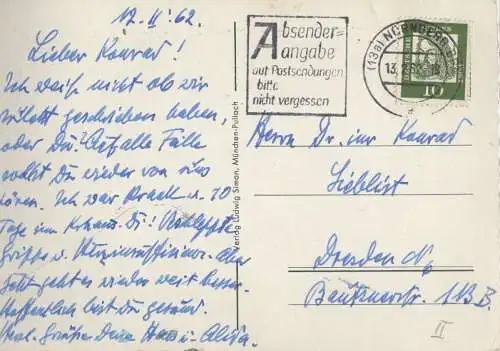 12. II. 62.
Lieber Konrad!
Ich weiß nicht ob wir
zuletzt geschrieben haben,
oder Du? Auf alle Fälle
sollst Du wieder von uns
hören. Ich war krank u. 10
Tage im
Grippe u. aber
jetzt geht es wieder weit besser.
Hoffentlich bist du gesund.
Grüße Deine Hans u.
Absender=
angabe
auf Postsendungen
bitte
nicht vergessen
(13a) NÜRNBERG
13.
10
Verlag Ludwig Simon, München-Pullach
Herrn Dr. iur Konrad
Lieblist
Dresden N6
Bautznerstr. 113 B.
II